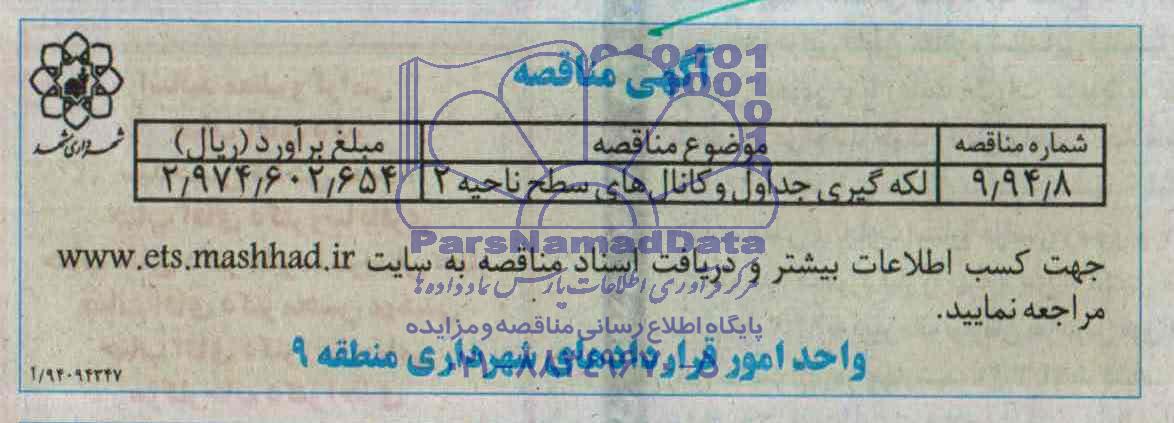 آگهی مناقصه
شهرداری مشهد
شماره مناقصه | موضوع مناقصه | مبلغ برآورد (ریال)
۹٫۹۴٫۸ | لکه گیری جداول و کانال های سطح ناحیه ۲ | ۲٫۹۷۴٫۶۰۲٫۶۵۴
جهت کسب اطلاعات بیشتر و دریافت اسناد مناقصه به سایت www.ets.mashhad.ir
مراجعه نمایید.
واحد امور قراردادهای شهرداری منطقه ۹
۱/۹۴۰۹۴۳۴۷
ParsNamadData
مرکز فرآوری اطلاعات پارس نماد داده ها
پایگاه اطلاع رسانی مناقصه و مزایده